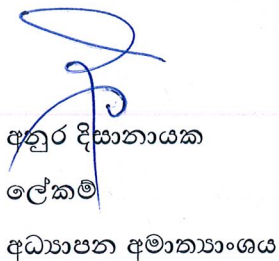 අනුර දිසානායක
ලේකම්
අධ්‍යාපන අමාත්‍යාංශය